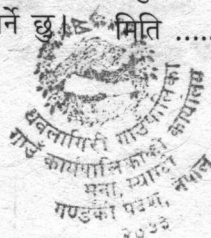 र्ने छु। मिति .....
धवलागिरी गाउँपालिका
गाउँ कार्यपालिकाको कार्यालय
म्याग्दी
गण्डकी प्रदेश, नेपाल
२०७३